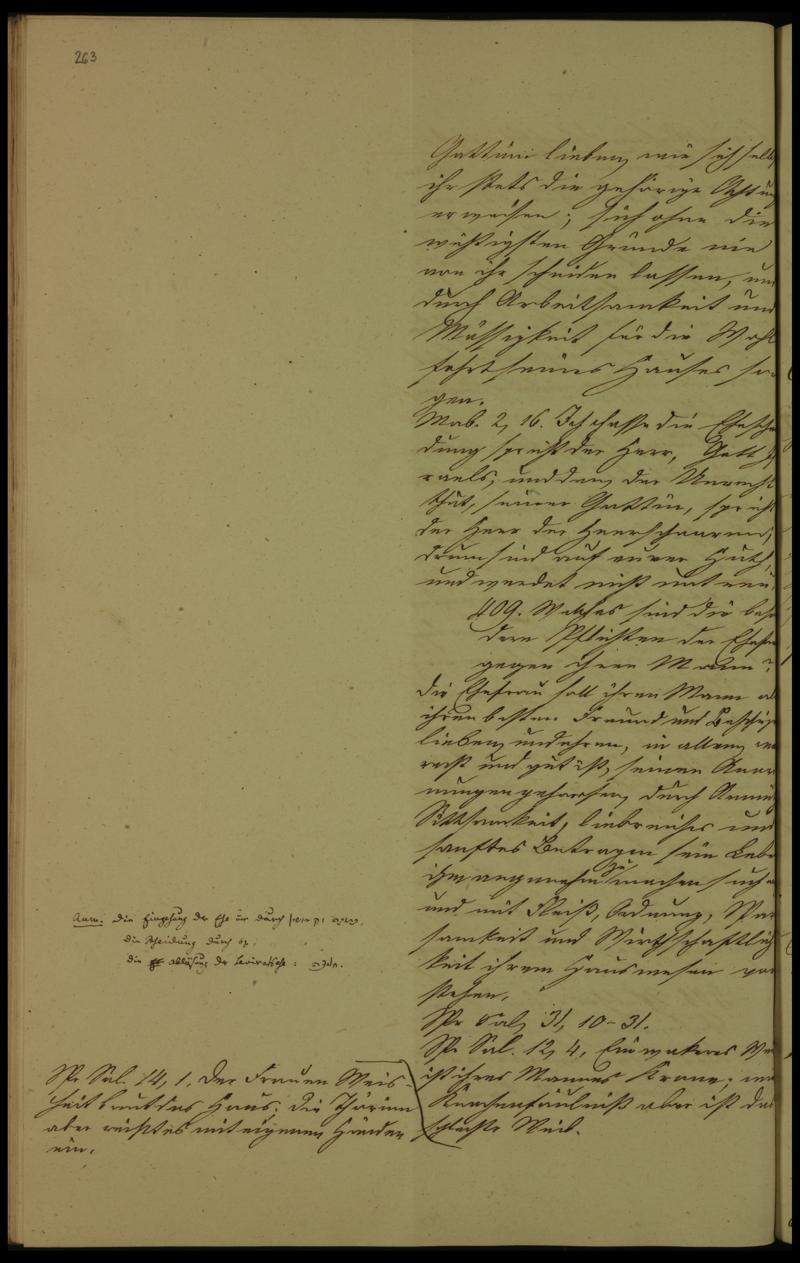 263
Gattinn lieben, wie sich selb
ihr stets die gehörige Achtun
erweisen; sich ohne die
wichtigsten Gründe nie
von ihr scheiden lassen, un
durch Arbeitsamkeit und
Mässigkeit für die Wohl
fahrt seines Hauses sor
gen.
Mal. 2, 16. Ich hasse die Ehesche
dung spricht der Herr, Gott Is
raels, und den, der Unrecht
thut, seiner Gattin, spricht
der Herr der Heerschaaren;
drum seid auf eurer Huth,
und werdet nicht untreu.
409. Welches sind die beso
dern Pflichten der Ehefra
gegen ihren Mann?
Die Ehefrau soll ihren Mann al
ihren besten Freund und Beschüz
lieben, und ehren, in allem, w
recht und gut ist, seinen Anor
nungen gehorchen, durch Anmut
Sittsamkeit, liebreiches und
sanftes Betragen sein Lebe
ihm angenehm zu machen suchen
und mit Fleiß, Ordnung, Spar
samkeit und Wirthschaftlich
keit ihrem Hauswesen vor
stehen.
Spr. Sal. 31, 10-31.
Spr. Sal. 12, 4. Ein wakeres We
ist ihres Mannes Krone; wie
Knochenfäulniß aber ist das
schlechte Weib.
Anm: die Eingehung der Ehe durch
die Scheidung durch גט,
die Ablösung der Leviratsehe: חליצה.
Spr. Sal. 14, 1. Der Frauen Weis-
heit baut das Haus; die Thörinn
aber reißt es mit eigenen Händen
ein.